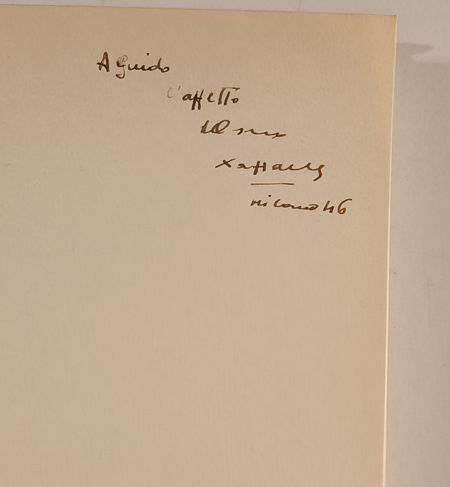 A Guido
l'affetto
del suo
Raffaele
milano 46